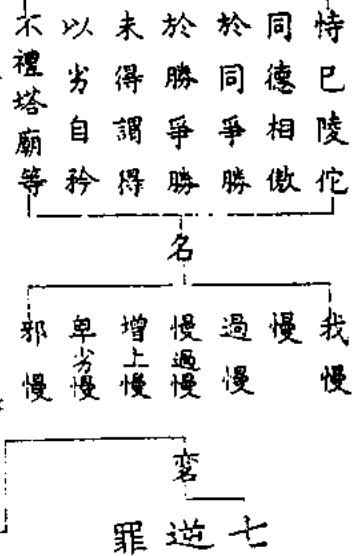 恃已陵佗
同德相傲
於同爭勝
於勝爭勝
未得謂得
以劣自矜
不禮塔廟等
名
我慢
慢
過慢
慢過慢
增上慢
卑劣慢
邪慢
変
七逆罪